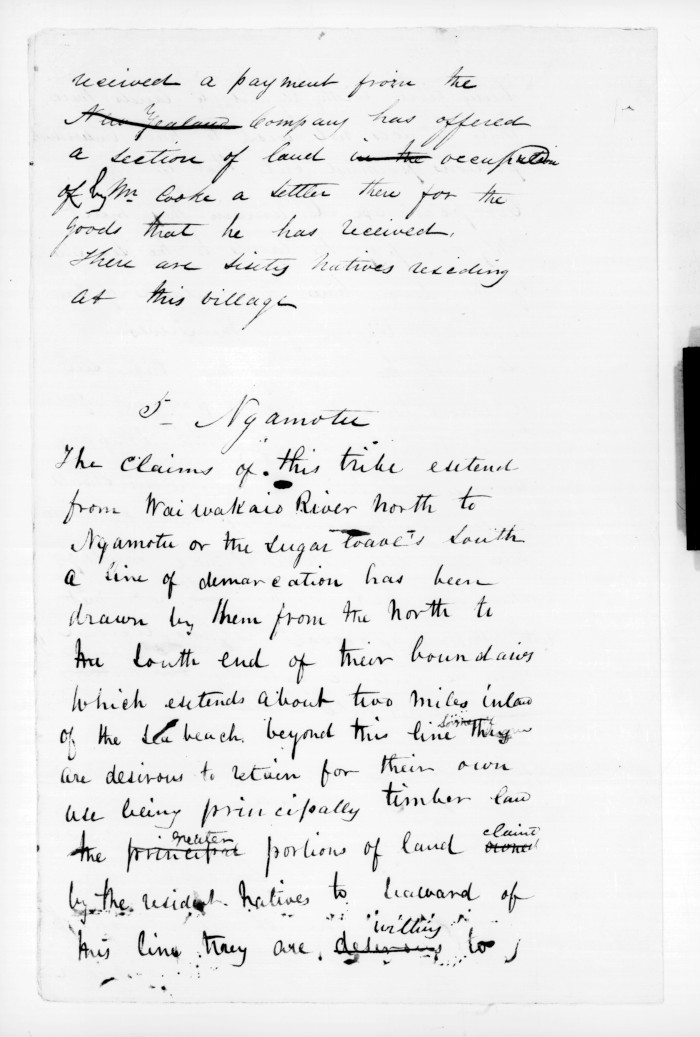 received a payment from the
New Zealand Company has offered
a section of land in the occupation
of by Mr Cooke a settler there for the
goods that he has received.
There are sixty natives residing
at this village
5- Ngamotu
The claims of this tribe extend
from Waiwakaio River North to
Ngamotu or the Sugar loaves South
a line of demarcation has been
drawn by them from the North to
the South end of their boundaries
which extends about two miles inland
of the sea beach. beyond this line they
are desirous to retain for their own
use being principally timber land
greater claimed
the principal portions of land owned
by the resident Natives to seaward of
"willing"
this line they are desirous to